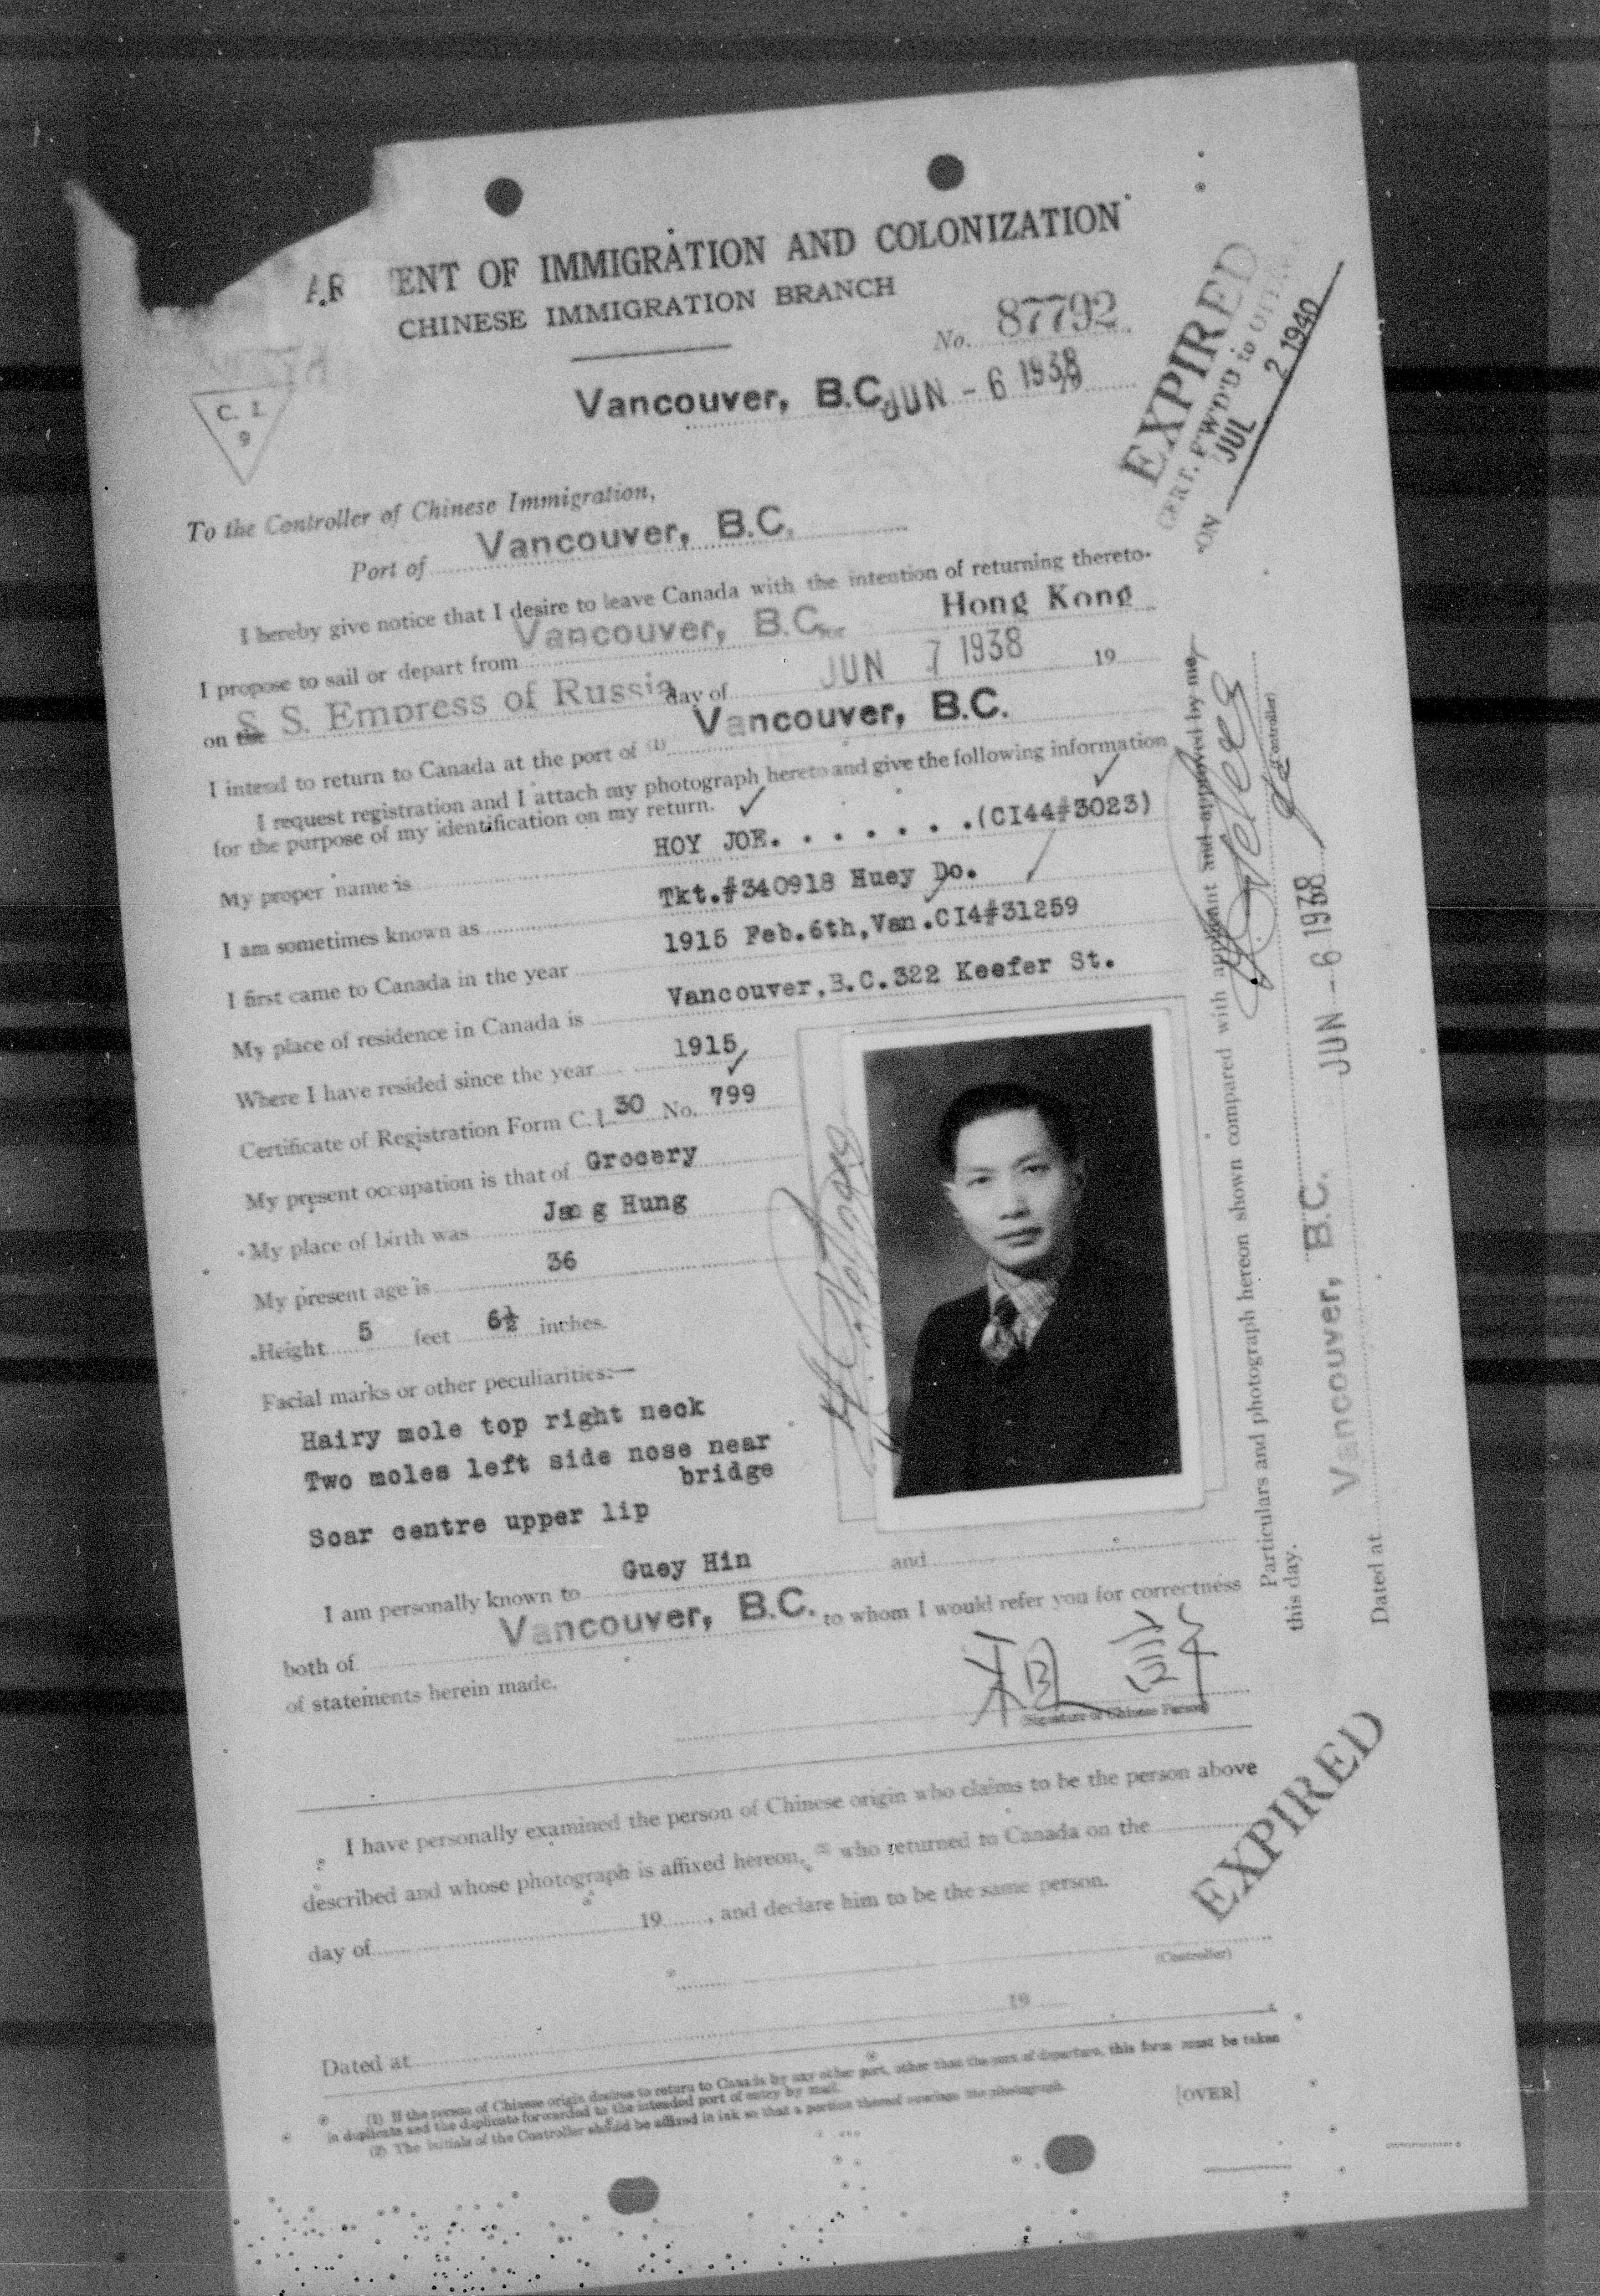 ARTMENT OF IMMIGRATION AND COLONIZATION
CHINESE IMMIGRATION BRANCH
No. 87792
Vancouver, B.C. JUN - 6 1938
C. I.
9
EXPIRED
CERT. F'W'D'D to
ON JUL 2 1940
To the Controller of Chinese Immigration,
Port of Vancouver, B.C.
I hereby give notice that I desire to leave Canada with the intention of returning thereto.
I propose to sail or depart from Vancouver, B.C. for Hong Kong
on the S. S. Empress of Russia day of JUN 7 1938 19
I intend to return to Canada at the port of (1) Vancouver, B.C.
I request registration and I attach my photograph hereto and give the following information
for the purpose of my identification on my return.
My proper name is HOY JOE. . . . . . . .(CI44#3023)
I am sometimes known as Tkt.#340918 Huey Do.
I first came to Canada in the year 1915 Feb.6th,Van.CI4#31259
My place of residence in Canada is Vancouver,B.C.322 Keefer St.
Where I have resided since the year 1915
Certificate of Registration Form C.I. 30 No. 799
My present occupation is that of Grocery
My place of birth was Jang Hung
My present age is 36
Height 5 feet 6½ inches.
Facial marks or other peculiarities:—
Hairy mole top right neck
Two moles left side nose near
bridge
Scar centre upper lip
I am personally known to Guey Hin and
both of Vancouver, B.C. to whom I would refer you for correctness
of statements herein made.
祖 許
(Signature of Chinese Person)
Particulars and photograph hereon shown compared with applicant and approved by me
this day.
(Controller)
Dated at Vancouver, B.C. JUN - 6 1938
I have personally examined the person of Chinese origin who claims to be the person above
described and whose photograph is affixed hereon, (2) who returned to Canada on the
day of 19 , and declare him to be the same person.
(Controller)
EXPIRED
Dated at 19
(1) If the person of Chinese origin desires to return to Canada by any other port, other than the port of departure, this form must be taken
in duplicate and the duplicate forwarded to the intended port of entry by mail.
(2) The initials of the Controller should be affixed in ink so that a portion thereof overlaps the photograph.
[OVER]